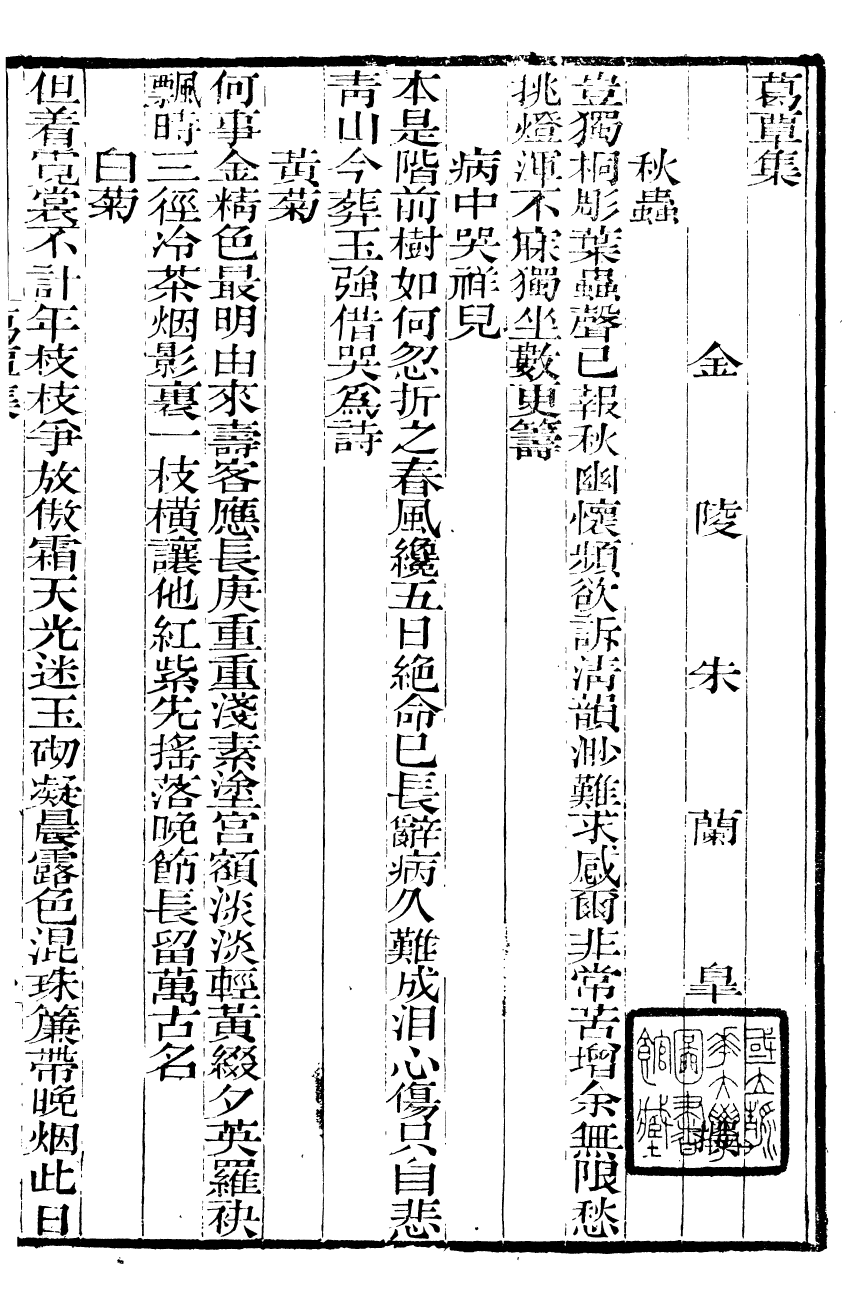 葛覃集
金陵朱蘭皐撰
秋蟲
豈獨桐彫葉蟲聲已報秋幽懷頻欲訴淸韻渺難求感爾非常苦增余無限愁
挑燈渾不寐獨坐數更籌
病中哭祥兒
本是階前樹如何忽折之春風纔五日絕命已長辭病久難成泪心傷只自悲
靑山今葬玉強借哭爲詩
黃菊
何事金精色最明由來壽客應長庚重重淺素塗宮額淡淡輕黃綴夕英羅袂
飄時三徑冷茶烟影裏一枝橫讓他紅紫先搖落晚節長留萬古名
白菊
但着霓裳不計年枝枝爭放傲霜天光迷玉砌凝晨露色混珠簾帶晚烟此日
葛覃集
國立靜淸華大學圖書館藏